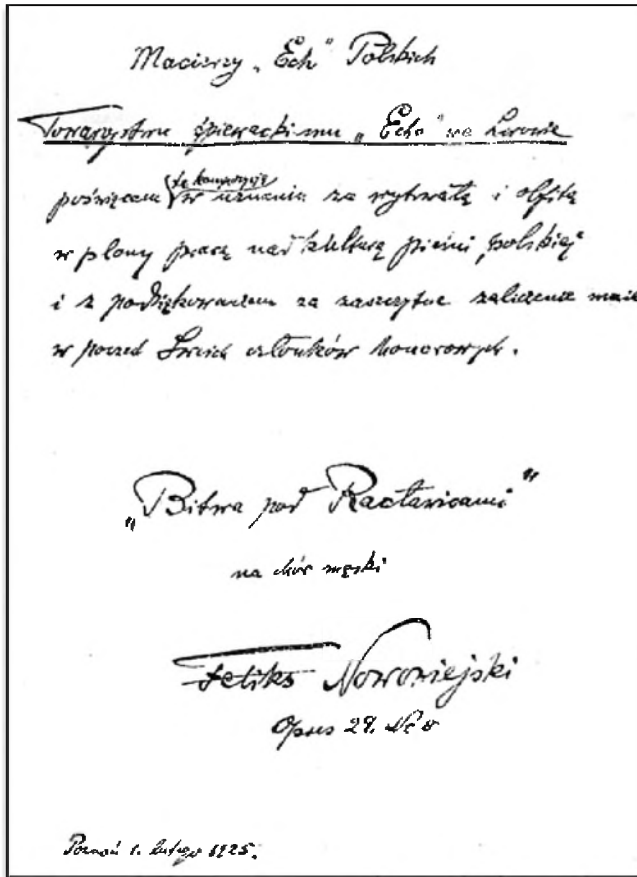 Macierzy „Ech" Polskich
Towarzystwu śpiewackiemu „Echo" we Lwowie
tę kompozycję
poświęcam w uznaniu za wytrwałą i obfitą
w plony pracę nad kulturą pieśni polskiej
i z podziękowaniem za zaszczytne zaliczenie mnie
w poczet Swoich członków honorowych.
„Bitwa pod Racławicami"
na chór męski
Feliks Nowowiejski
Opus 29. No
Poznań 1. lutego 1925.